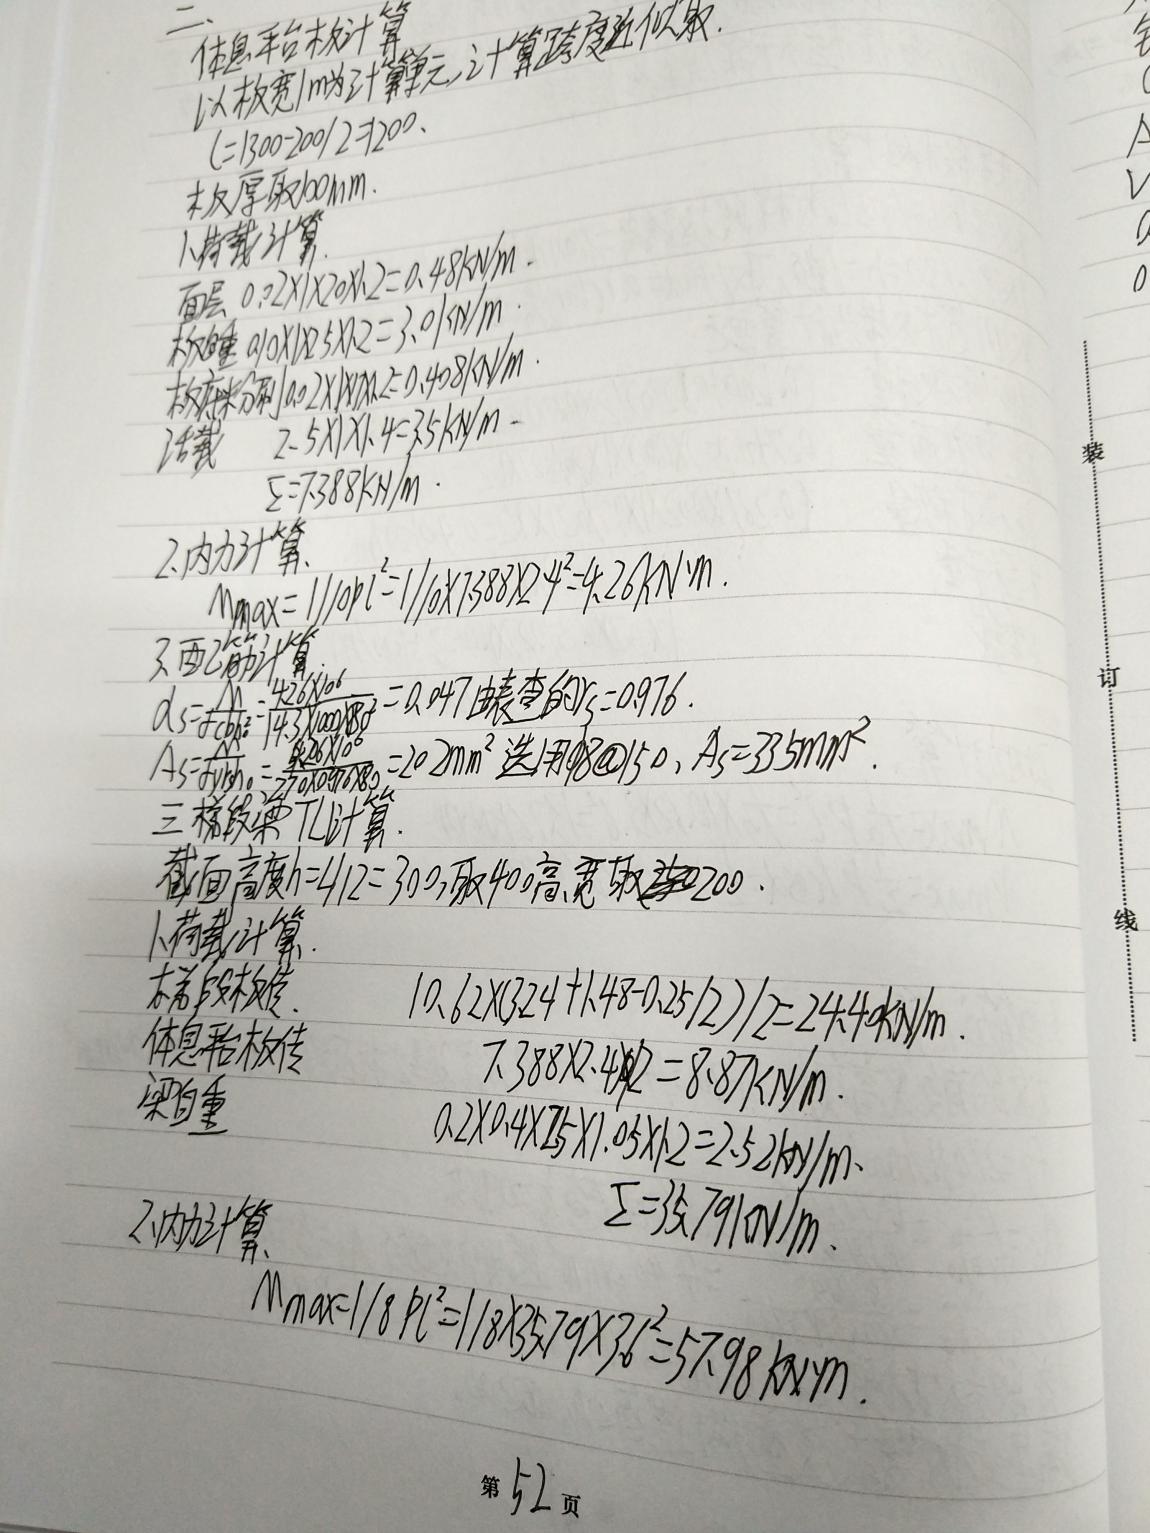 二、
休息平台板计算
以板宽1m为计算单元,计算跨度近似取.
l=1300-200/2=1200.
板厚取100mm.
1、荷载计算.
面层 0.02X1X20X1.2=0.48KN/m.
板自重 0.10X1X25X1.2=3.0KN/m.
板底粉刷 0.02X1X17X1.2=0.408KN/m.
活载 2.5X1X1.4=3.5KN/m.
Σ=7.388KN/m.
2.内力计算.
Mmax=1/10pl²=1/10X7.388X2.4²=4.26KN·m.
3.配筋计算.
αs=M/fcbh₀²=4.26X10⁶/14.3X1000X80²=0.047 由表查的γs=0.976.
As=M/fyγsh₀=4.26X10⁶/270X0.976X80=202mm² 选用φ8@150, As=335mm².
三 梯段梁TL1计算.
截面高度h=L/12=300,取400高,宽取200.
1、荷载计算.
梯段板传. 10.62X(3.24+1.48-0.25/2)/2=24.40KN/m.
休息平台板传 7.388X2.4/2=8.87KN/m.
梁自重 0.2X0.4X25X1.05X1.2=2.52KN/m.
Σ=35.79KN/m.
2、内力计算.
Mmax=1/8Pl²=1/8X35.79X3.6²=57.98KN·m.
第52页
装
订
线